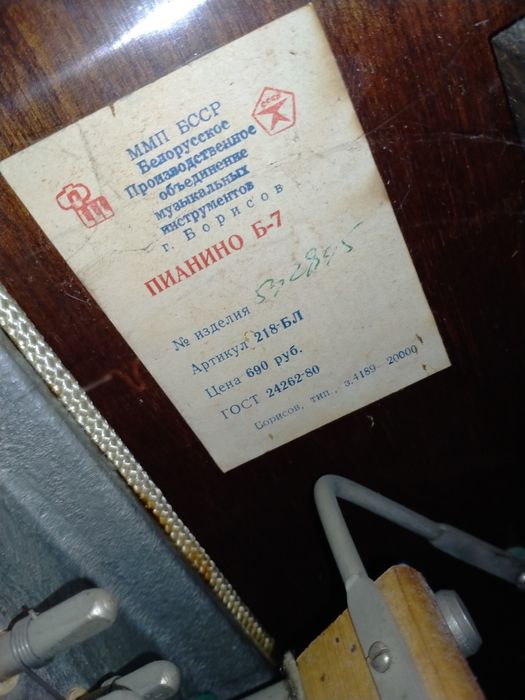 ММП БССР
Белорусское
Производственное
объединение
музыкальных
инструментов
г. Борисов
СССР
ПИАНИНО Б-7
№ изделия
Артикул 218-БЛ
Цена 690 руб.
ГОСТ 24262-80
Борисов, тип., з.4189—20000